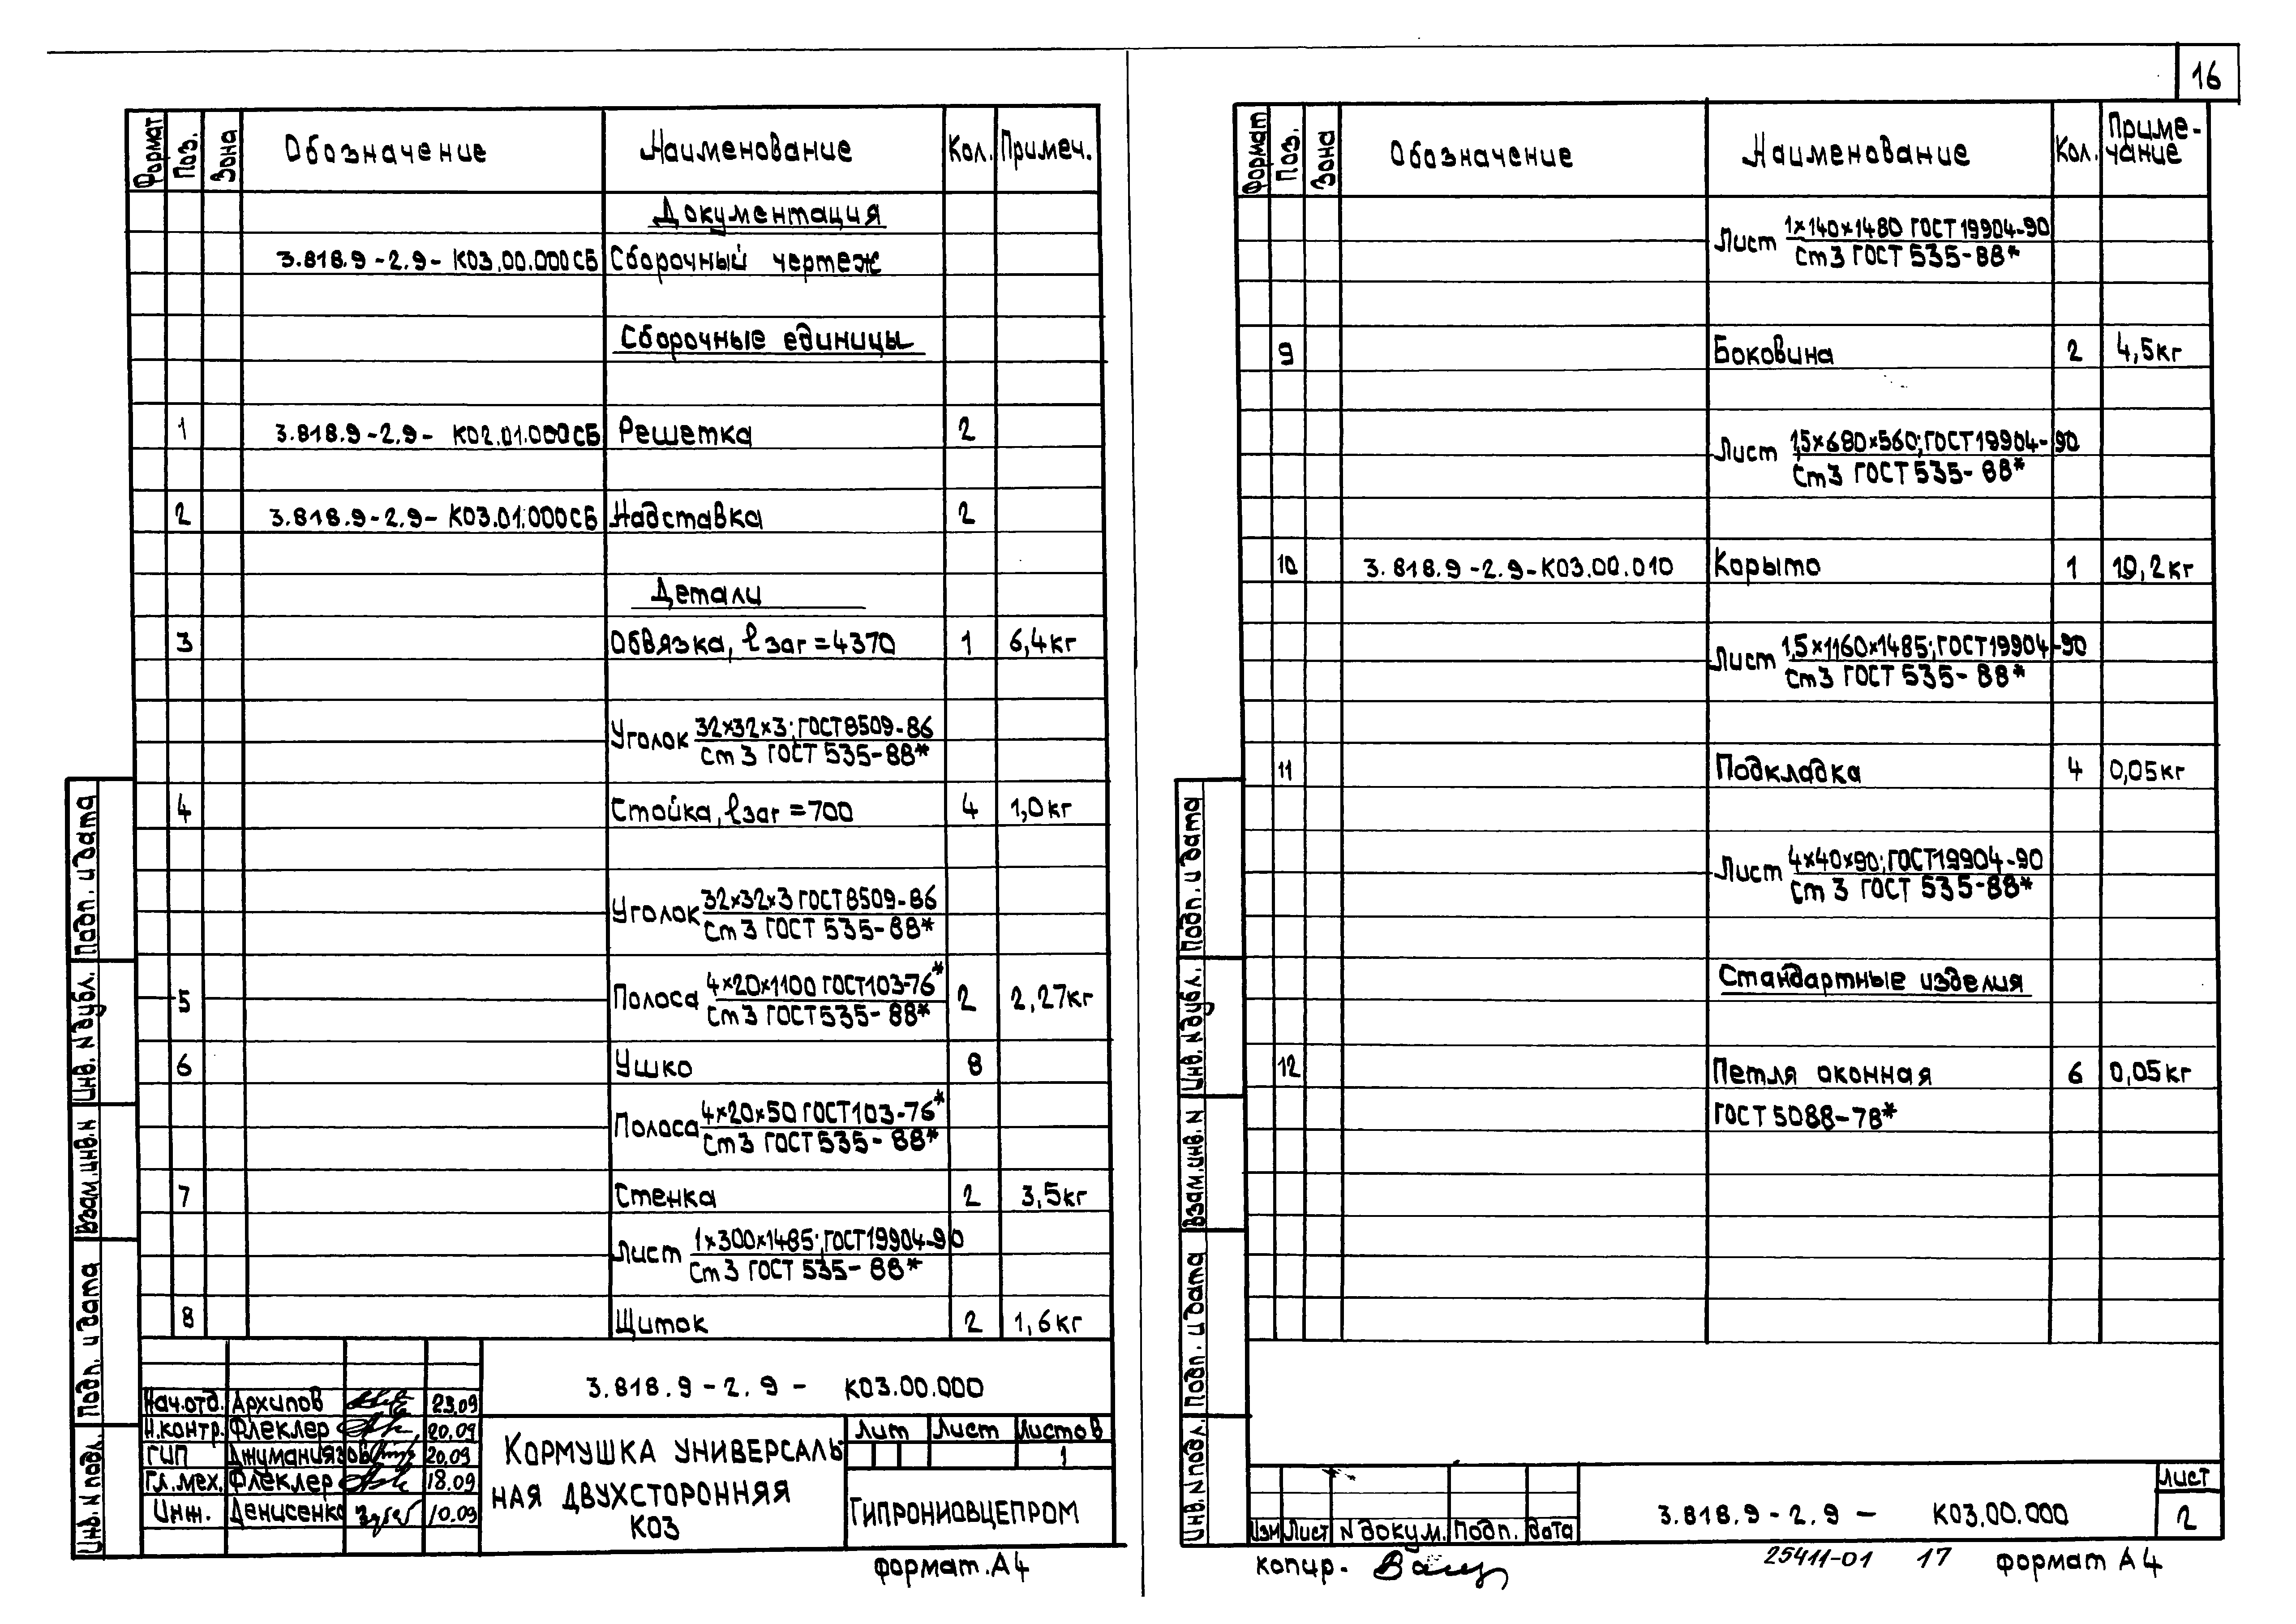 16
Формат Поз. Зона Обозначение Наименование Кол. Примеч.
Документация
3.818.9-2.9- К03.00.000СБ Сборочный чертеж
Сборочные единицы
1 3.818.9-2.9- К02.01.000СБ Решетка 2
2 3.818.9-2.9- К03.01.000СБ Надставка 2
Детали
3 Обвязка, ℓзаг=4370 1 6,4кг
Уголок 32×32×3; ГОСТ 8509-86
Ст3 ГОСТ 535-88*
4 Стойка, ℓзаг=700 4 1,0кг
Уголок 32×32×3 ГОСТ 8509-86
Ст3 ГОСТ 535-88*
5 Полоса 4×20×1100 ГОСТ103-76* 2 2,27кг
Ст3 ГОСТ 535-88*
6 Ушко 8
Полоса 4×20×50 ГОСТ103-76*
Ст3 ГОСТ 535-88*
7 Стенка 2 3,5кг
Лист 1×300×1485; ГОСТ19904-90
Ст3 ГОСТ 535-88*
8 Щиток 2 1,6кг
3.818.9-2.9- К03.00.000
Нач.отд. Архипов 23.09
Н.контр. Флеклер 20.09
ГИП Джуманиязов 20.09
Гл.мех. Флеклер 18.09
Инж. Денисенко 10.09
Кормушка универсаль
ная двухсторонняя
К03
Лит Лист Листов
1
Гипрониовцепром
формат.А4
Инв. N подл. Подп. и дата Взам.инв.N Инв. N дубл. Подп. и дата
Формат Поз. Зона Обозначение Наименование Кол. Приме-
чание
Лист 1×140×1480 ГОСТ 19904-90
Ст3 ГОСТ 535-88*
9 Боковина 2 4,5кг
Лист 1,5×680×560; ГОСТ19904-90
Ст3 ГОСТ 535-88*
10 3.818.9-2.9-К03.00.010 Корыто 1 19,2кг
Лист 1,5×1160×1485; ГОСТ19904-90
Ст3 ГОСТ 535-88*
11 Подкладка 4 0,05кг
Лист 4×40×90; ГОСТ19904-90
Ст3 ГОСТ 535-88*
Стандартные изделия
12 Петля оконная 6 0,05кг
ГОСТ 5088-78*
Инв. N подл. Подп. и дата Взам.инв.N Инв. N дубл. Подп. и дата
Изм Лист N докум. Подп. дата
3.818.9-2.9- К03.00.000
Лист
2
копир.
25411-01 17 формат А4